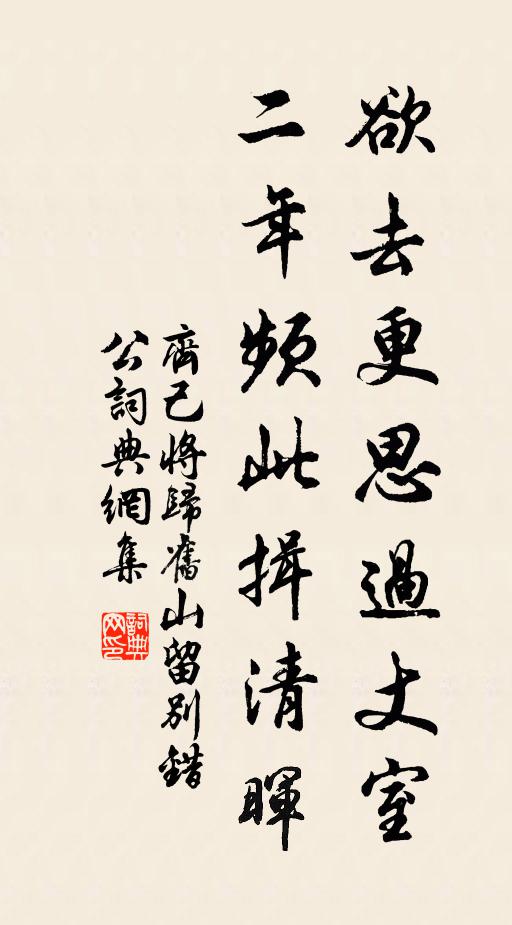 欲去更思過丈室
二年頻此揖清暉
齊己將歸舊山留別錯
公詞典網集
詞典網印